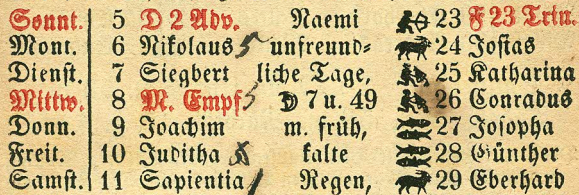 Sonnt. 5 D 2 Adv. Naemi 23 F 23 Trin.
Mont. 6 Nikolaus 5 unfreund= 24 Josias
Dienst. 7 Siegbert liche Tage, 25 Katharina
Mittw. 8 M. Empf 5 D 7 u. 49 26 Conradus
Donn. 9 Joachim m. früh, 27 Josopha
Freit. 10 Juditha kalte 28 Günther
Samst. 11 Sapientia Regen, 29 Eberhard